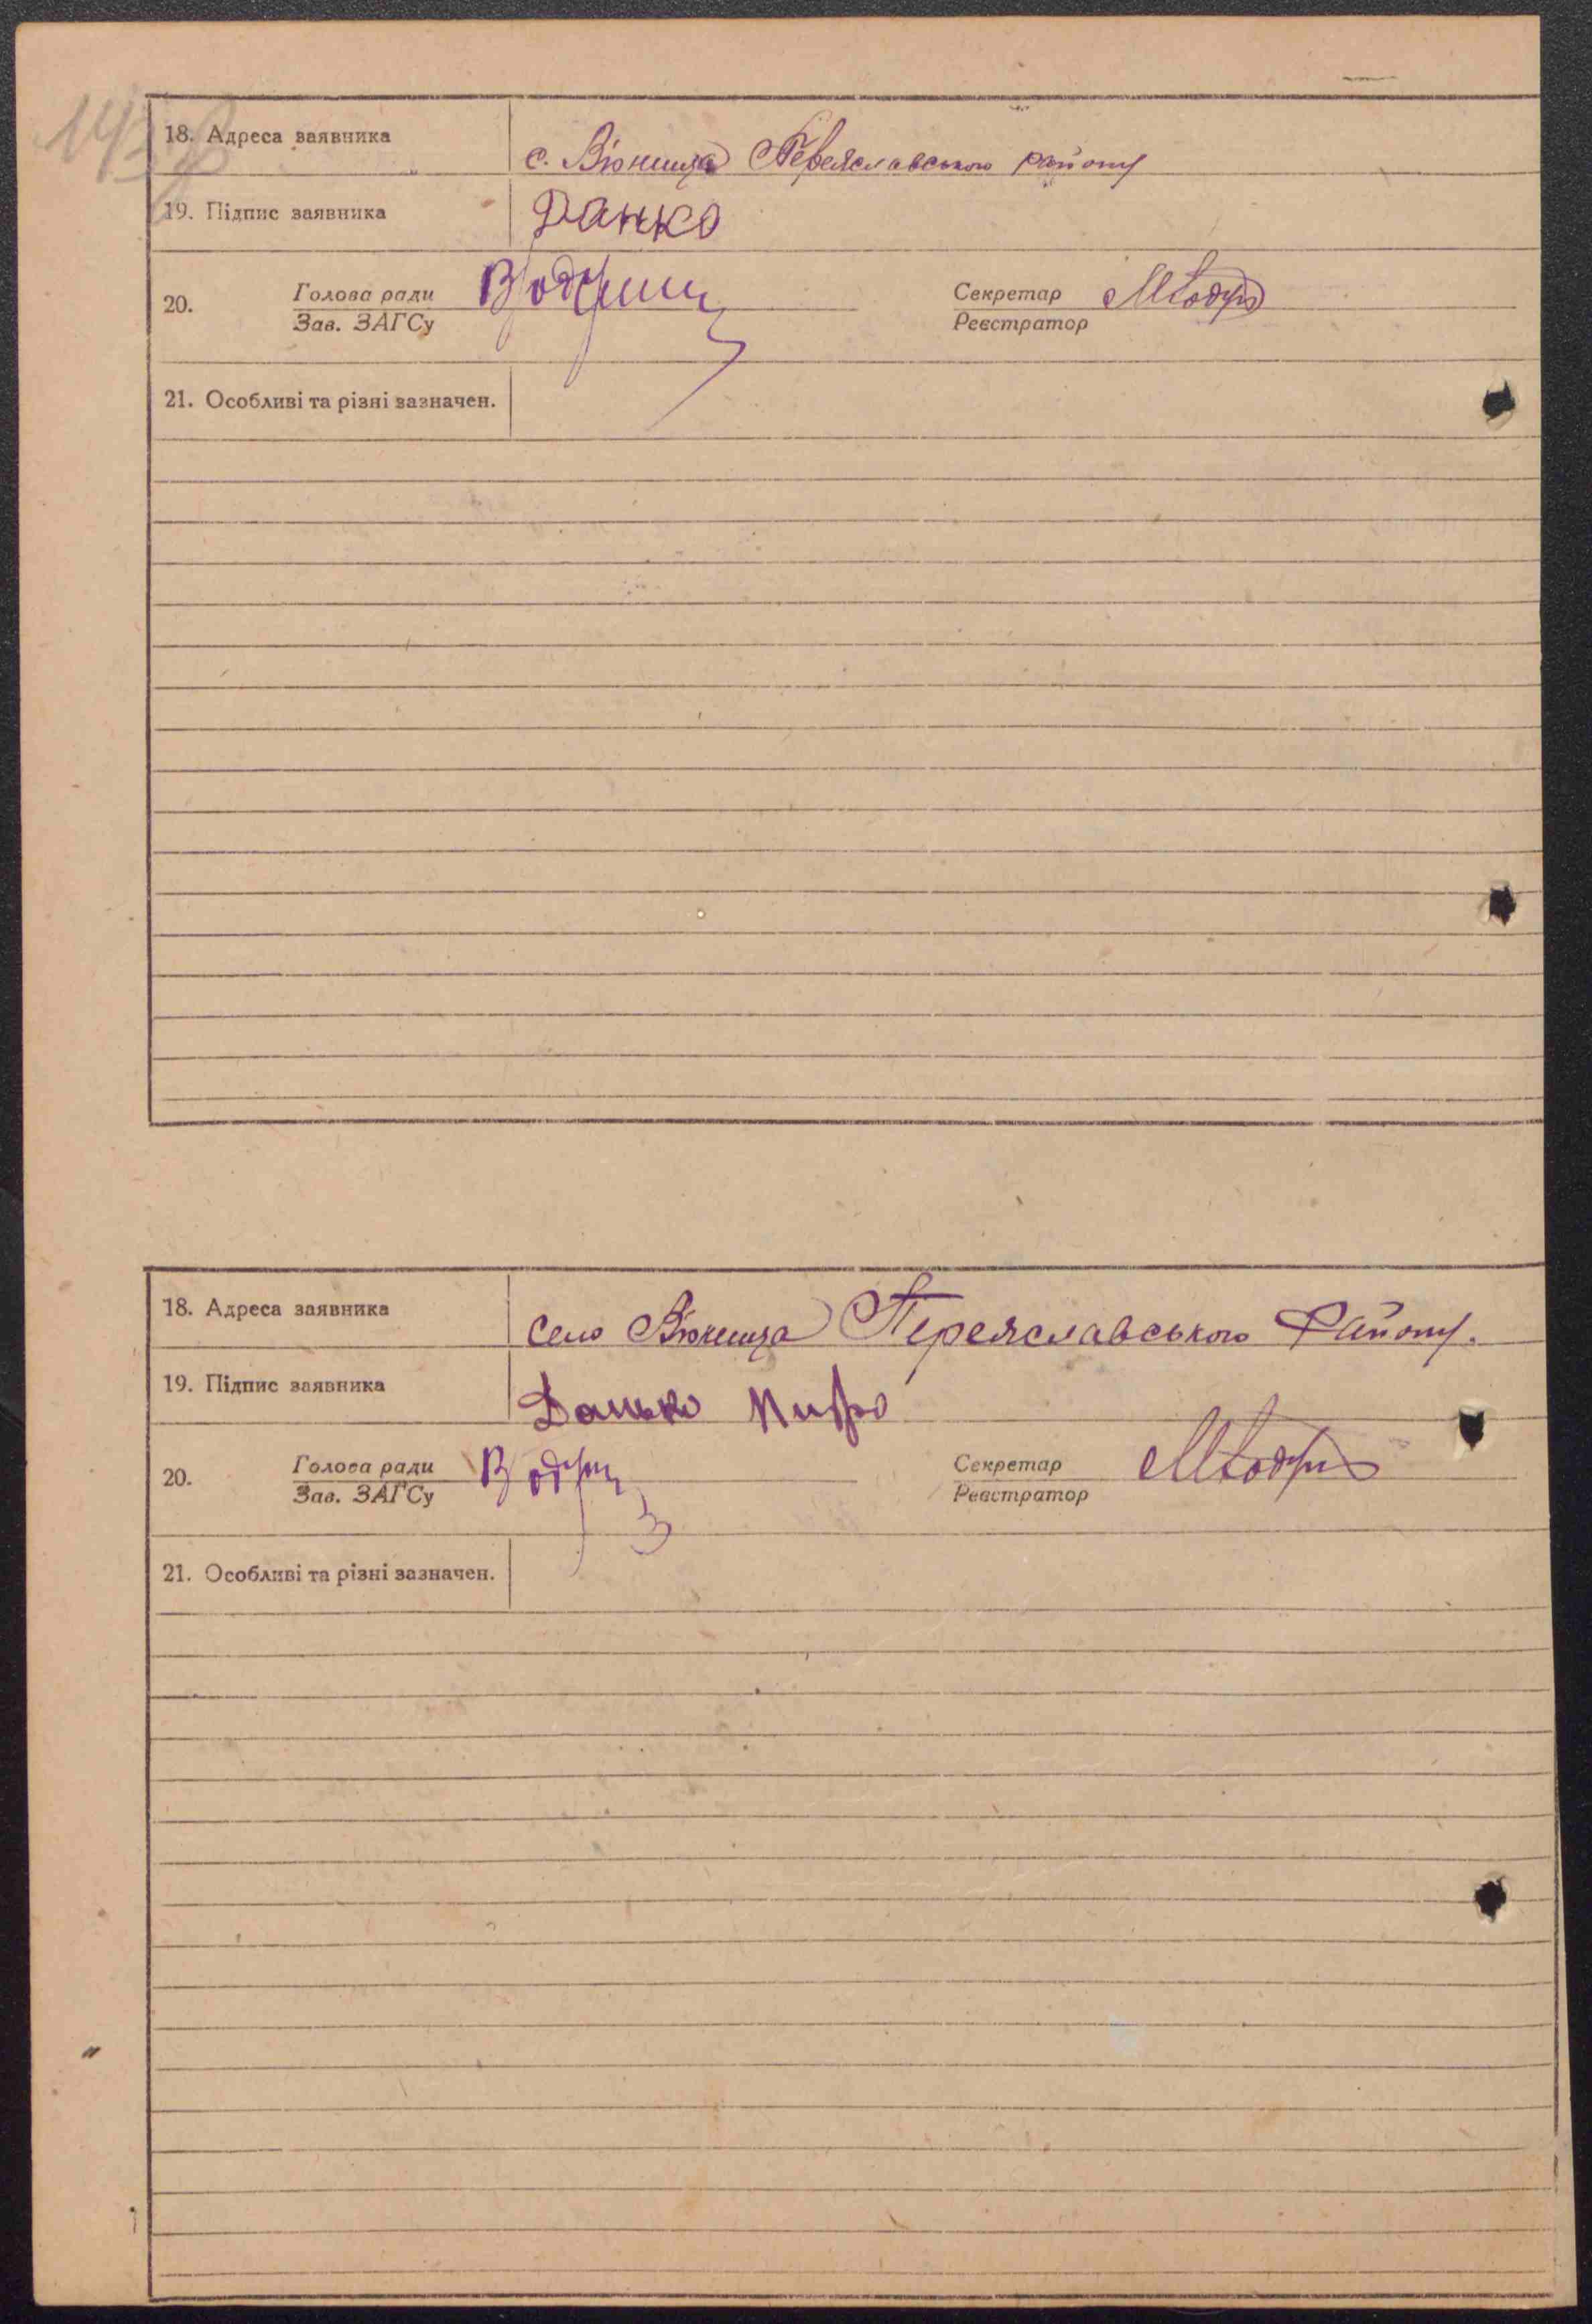 143
18. Адреса заявника с. В'юнища Переяславського району
19. Підпис заявника Данко
20. Голова ради Секретар
Зав. ЗАГСу Реєстратор
21. Особливі та різні зазначен.
18. Адреса заявника село В'юнища Переяславського Району.
19. Підпис заявника Данько
20. Голова ради Секретар
Зав. ЗАГСу Реєстратор
21. Особливі та різні зазначен.